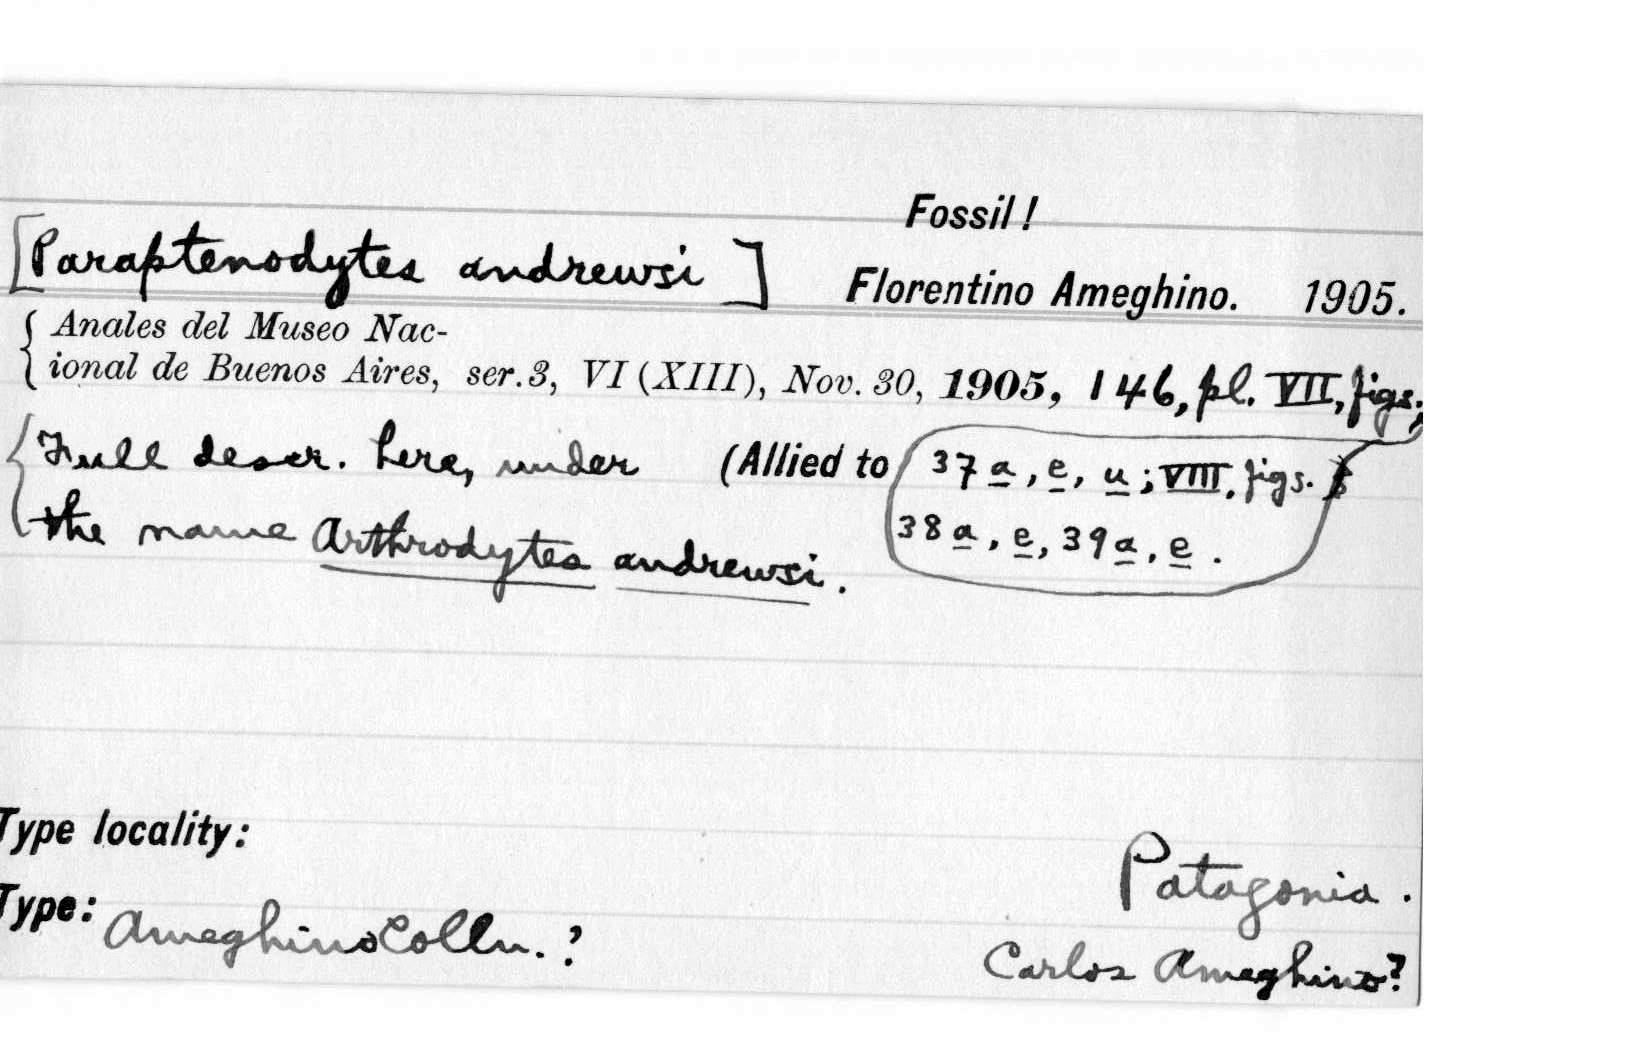 Fossil!
[Paraptenodytes andrewsi] Florentino Ameghino. 1905.
{ Anales del Museo Nac-
ional de Buenos Aires, ser. 3, VI (XIII), Nov. 30, 1905, 146, pl. VII, figs.
{ Full descr. here, under (Allied to 37 a, e, u; VIII, figs.
the name Arthrodytes andrewsi. 38 a, e, 39 a, e.
Type locality:
Patagonia.
Type: Ameghino Colln.?
Carlos Ameghino?